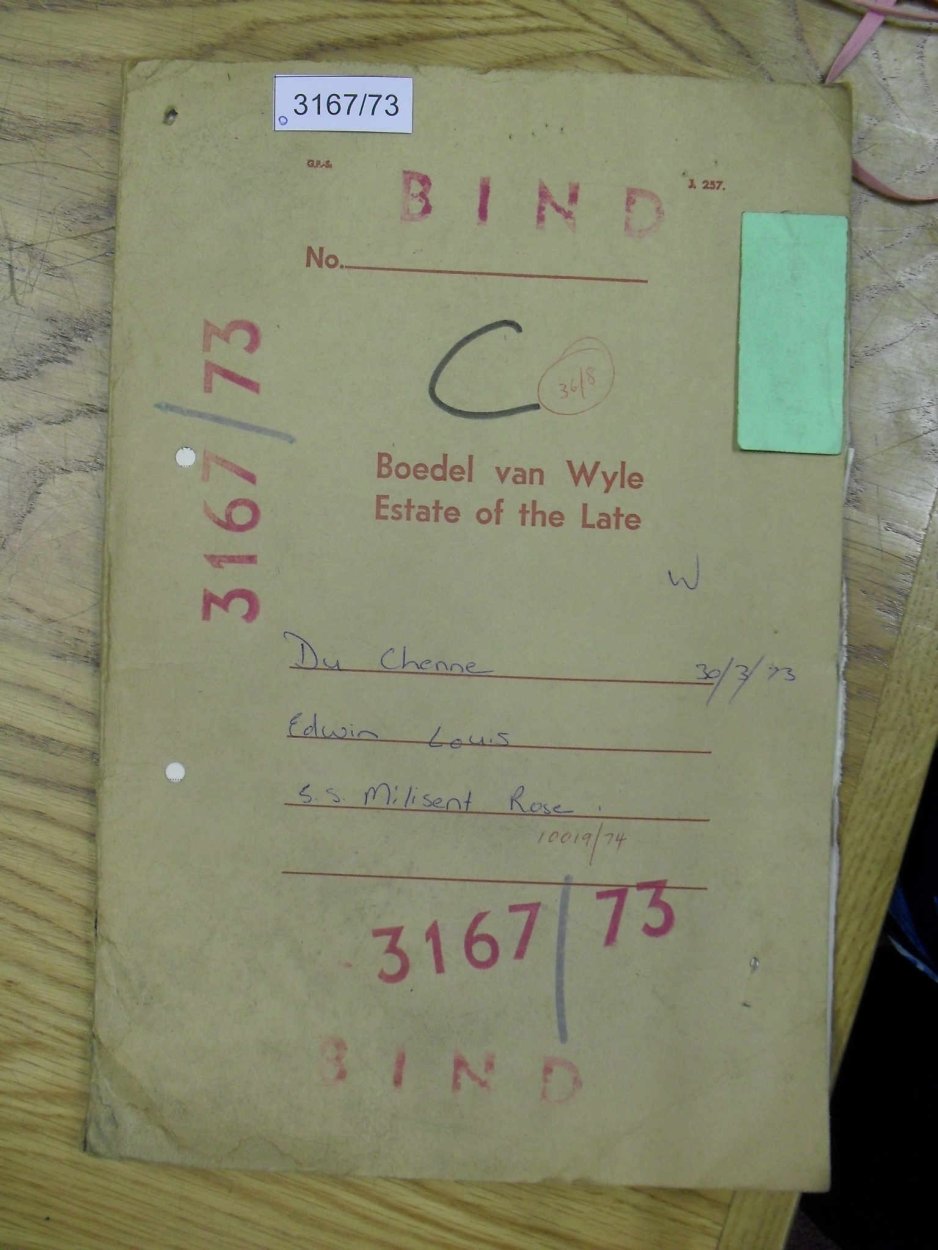 3167/73
G.P.-S.
J. 257.
BIND
No.
C
36/8
3167/73
Boedel van Wyle
Estate of the Late
W
Du Chenne 30/3/73
Edwin Louis
s.s. Milisent Rose.
10019/74
3167/73
BIND